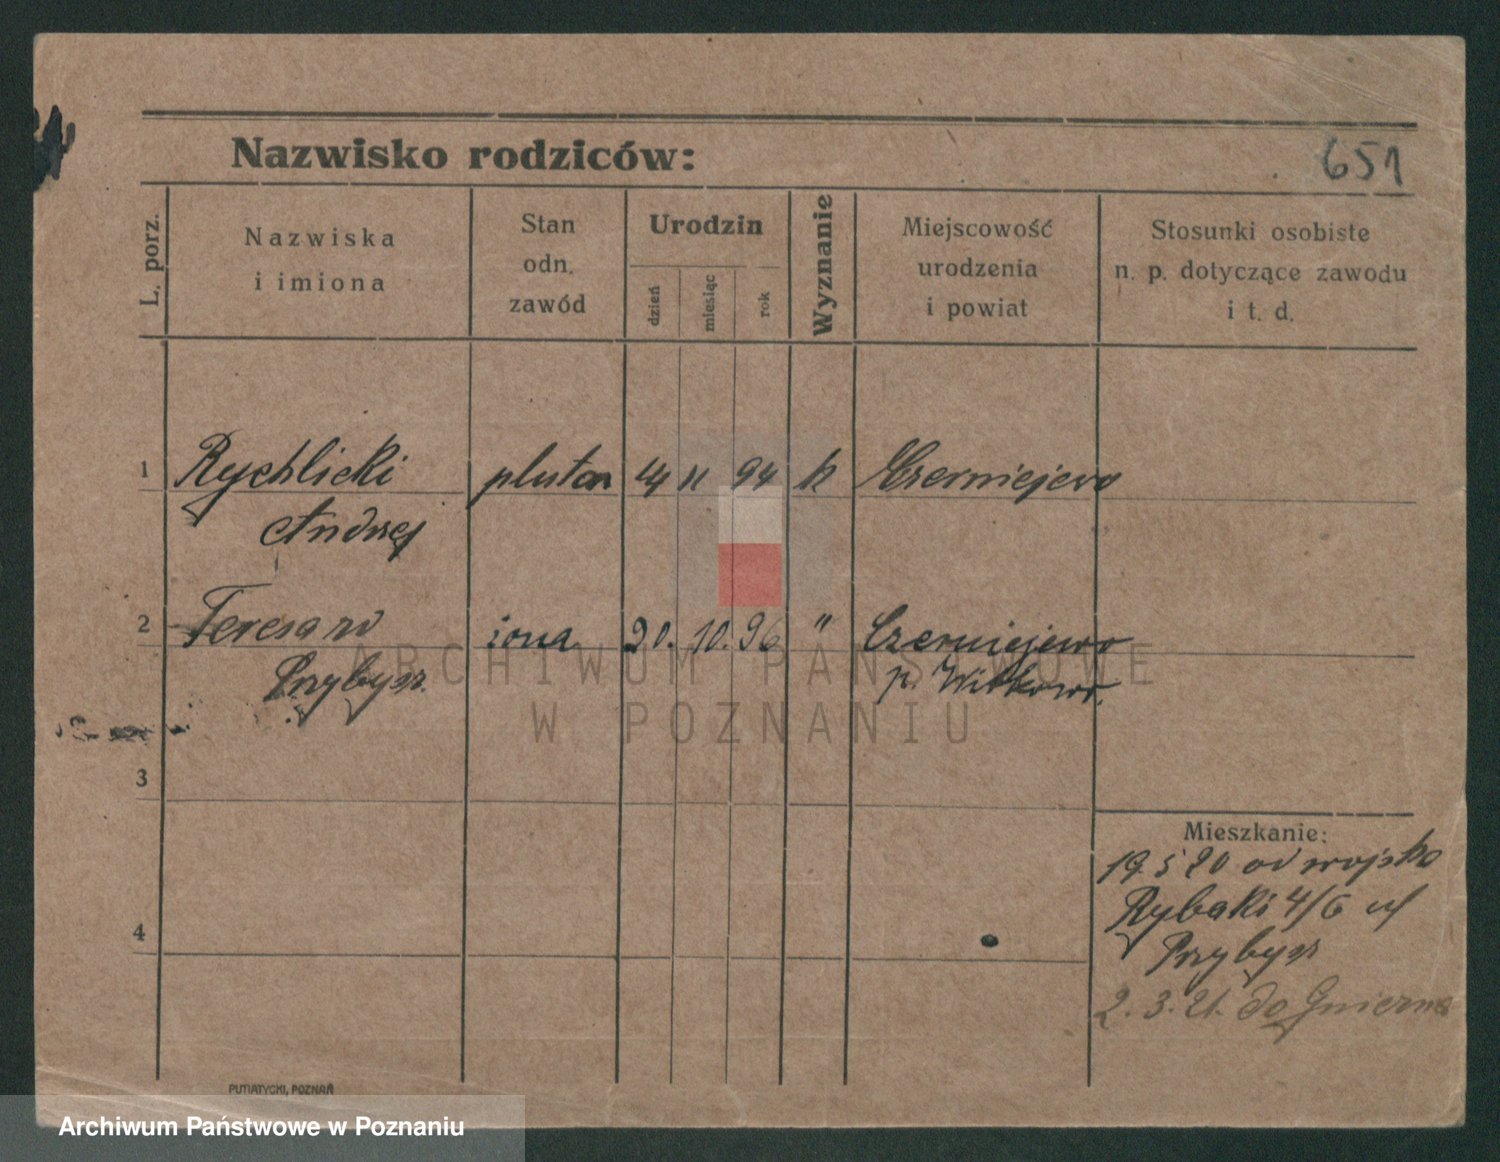 Nazwisko rodziców:
651
L. porz.
Nazwiska
i imiona
Stan
odn.
zawód
Urodzin
dzień
miesiąc
rok
Wyznanie
Miejscowość
urodzenia
i powiat
Stosunki osobiste
n. p. dotyczące zawodu
i t. d.
1 Rychlicki pluton 14 11 94 k Czerniejewo
Andrzej
2 Teresa rd żona 20. 10. 96 " Czerniejewo
Przybysz. p. Witkowo.
3
4
Mieszkanie:
19. 5 20 od wojska
Rybaki 4/6 u
Przybysz
2. 3. 21. do Gniezna
PUTIATYCKI, POZNAŃ
ARCHIWUM PAŃSTWOWE
W POZNANIU
Archiwum Państwowe w Poznaniu